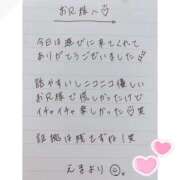 お兄様へ♡
今日は遊びに来てくれて
ありがとうございました
話やすいしニコニコ優しい
お兄様で嬉しかったけど
イチャイチャ楽しかった♡笑
証拠は残さずね！笑
えまより